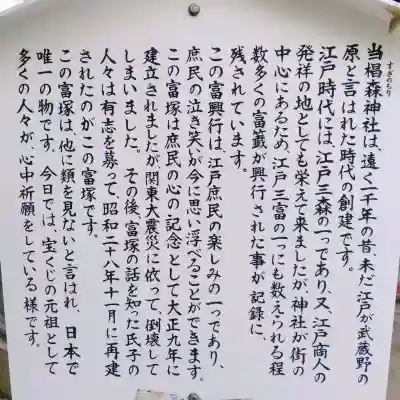 当椙森神社は、遠く一千年の昔、未だ江戸が武蔵野の
すぎのもり
原と言はれた時代の創建です。
江戸時代には、江戸三森の一つであり、又、江戸商人の
発祥の地としても栄えて来ましたが、神社が街の
中心にあるため、江戸三富の一つにも数えられる程
数多くの富籤が興行された事が記録に、
残されています。
この富興行は、江戸庶民の楽しみの一つであり、
庶民の泣き笑いが今に思い浮べることができます。
この富塚は庶民の心の記念として大正九年に
建立されましたが関東大震災に依って、倒壊して
しまいました。その後、富塚の話を知った氏子の
人々は有志を募って、昭和二十八年十一月に再建
されたのがこの富塚です。
この富塚は、他に類を見ないと言はれ、日本で
唯一の物です。今日では、宝くじの元祖として
多くの人々が、心中祈願をしている様です。